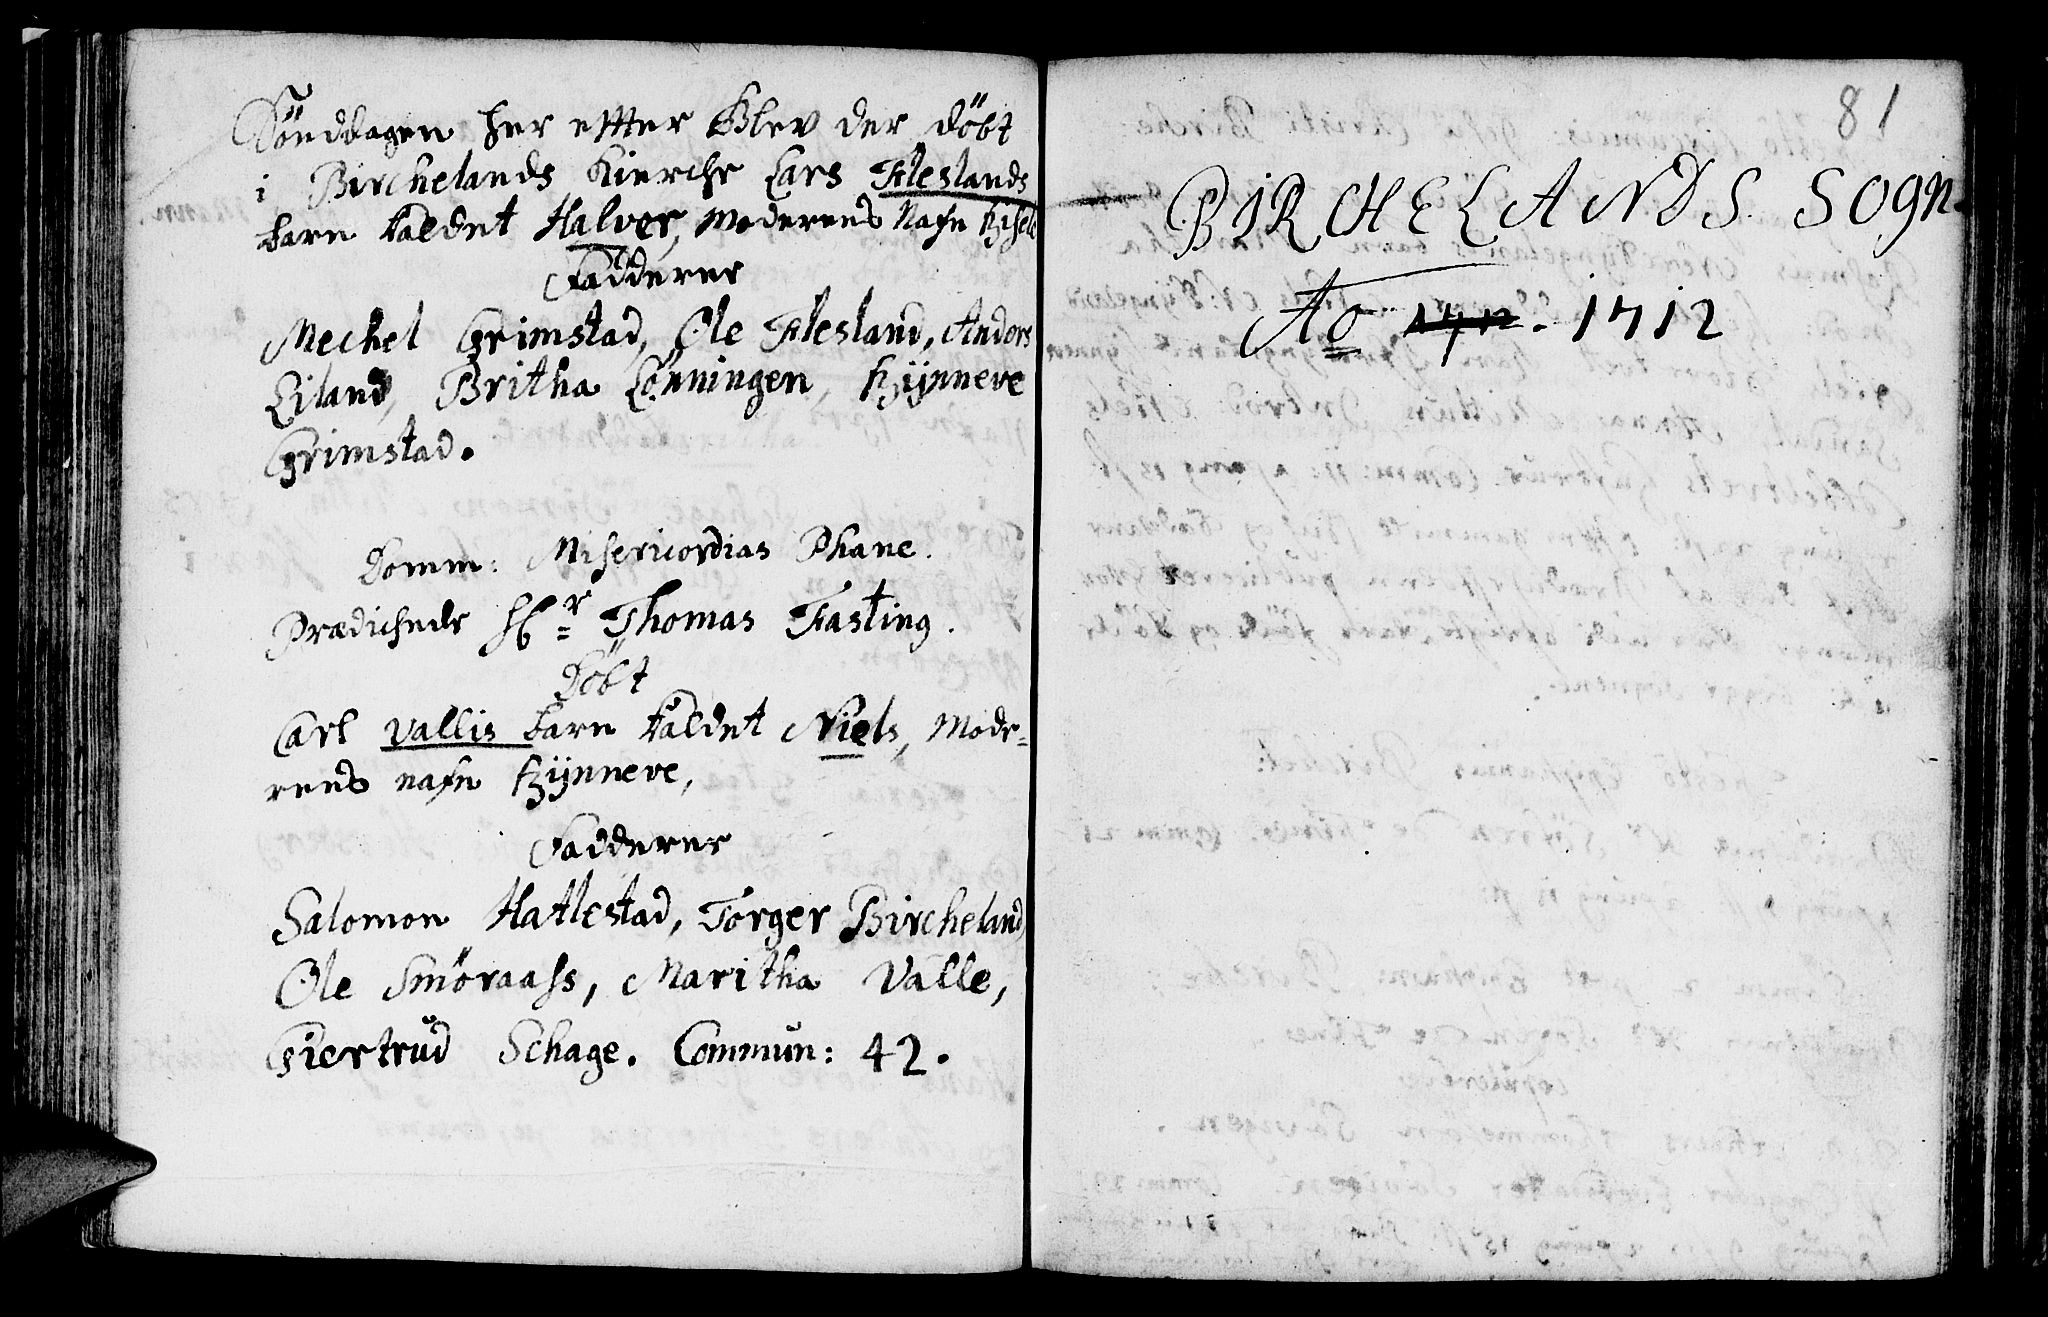 Söndagen her effter Blev der döbt
i Birchelands Kierche Lars Fleslands
barn kaldet Halver, Moderens Nafn
Fadderer
Mechel Grimstad, Ole Flesland, Anders
Eiland, Britha Lönningen, Zÿnneve
Grimstad.
Domm: Misericordias Phane.
Prædichede Hr Thomas Fasting.
Döbt
Carl Vallis barn kaldet Niels, Mode=
rens nafn Zÿnneve,
Fadderer
Salomon Hatlestad, Torger Bircheland,
Ole Smöraass, Maritha Valle,
Giertrud Schage. Commun: 42.
81
BIRCHELANDS SOGN.
Ao 1712